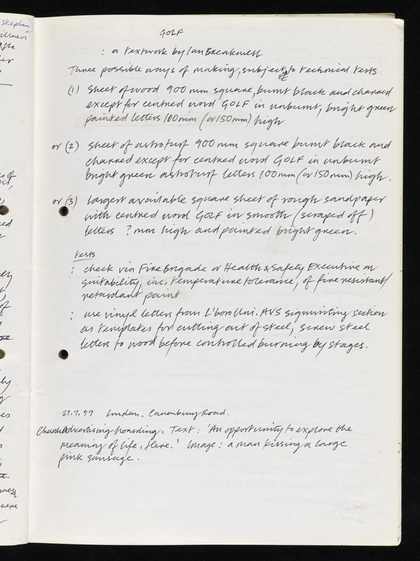 GOLF
: a textwork by Ian Breakwell
Three possible ways of making, subject to technical tests
(1) sheet of wood 900 mm square, burnt black and charred
except for centred word GOLF in unburnt, bright green
painted letters 100mm (or 150mm) high
or (2) sheet of astroturf 900 mm square burnt black and
charred except for centred word GOLF in unburnt
bright green astroturf letters 100mm (or 150mm) high.
or (3) largest available square sheet of rough sandpaper
with centred word GOLF in smooth (scraped off)
letters ? mm high and painted bright green.
Tests
: check via Fire Brigade or Health & Safety Executive on
suitability, inc. temperature tolerance, of fire resistant/
retardant paint
: use vinyl letters from L'boro Uni. AVS signwriting section
as templates for cutting out of steel, screw steel
letters to wood before controlled burning by stages.
London. Canonbury Road.
Advertising hoarding. Text: 'An opportunity to explore the
meaning of life. Here.' Image: a man kissing a large
pink sausage.